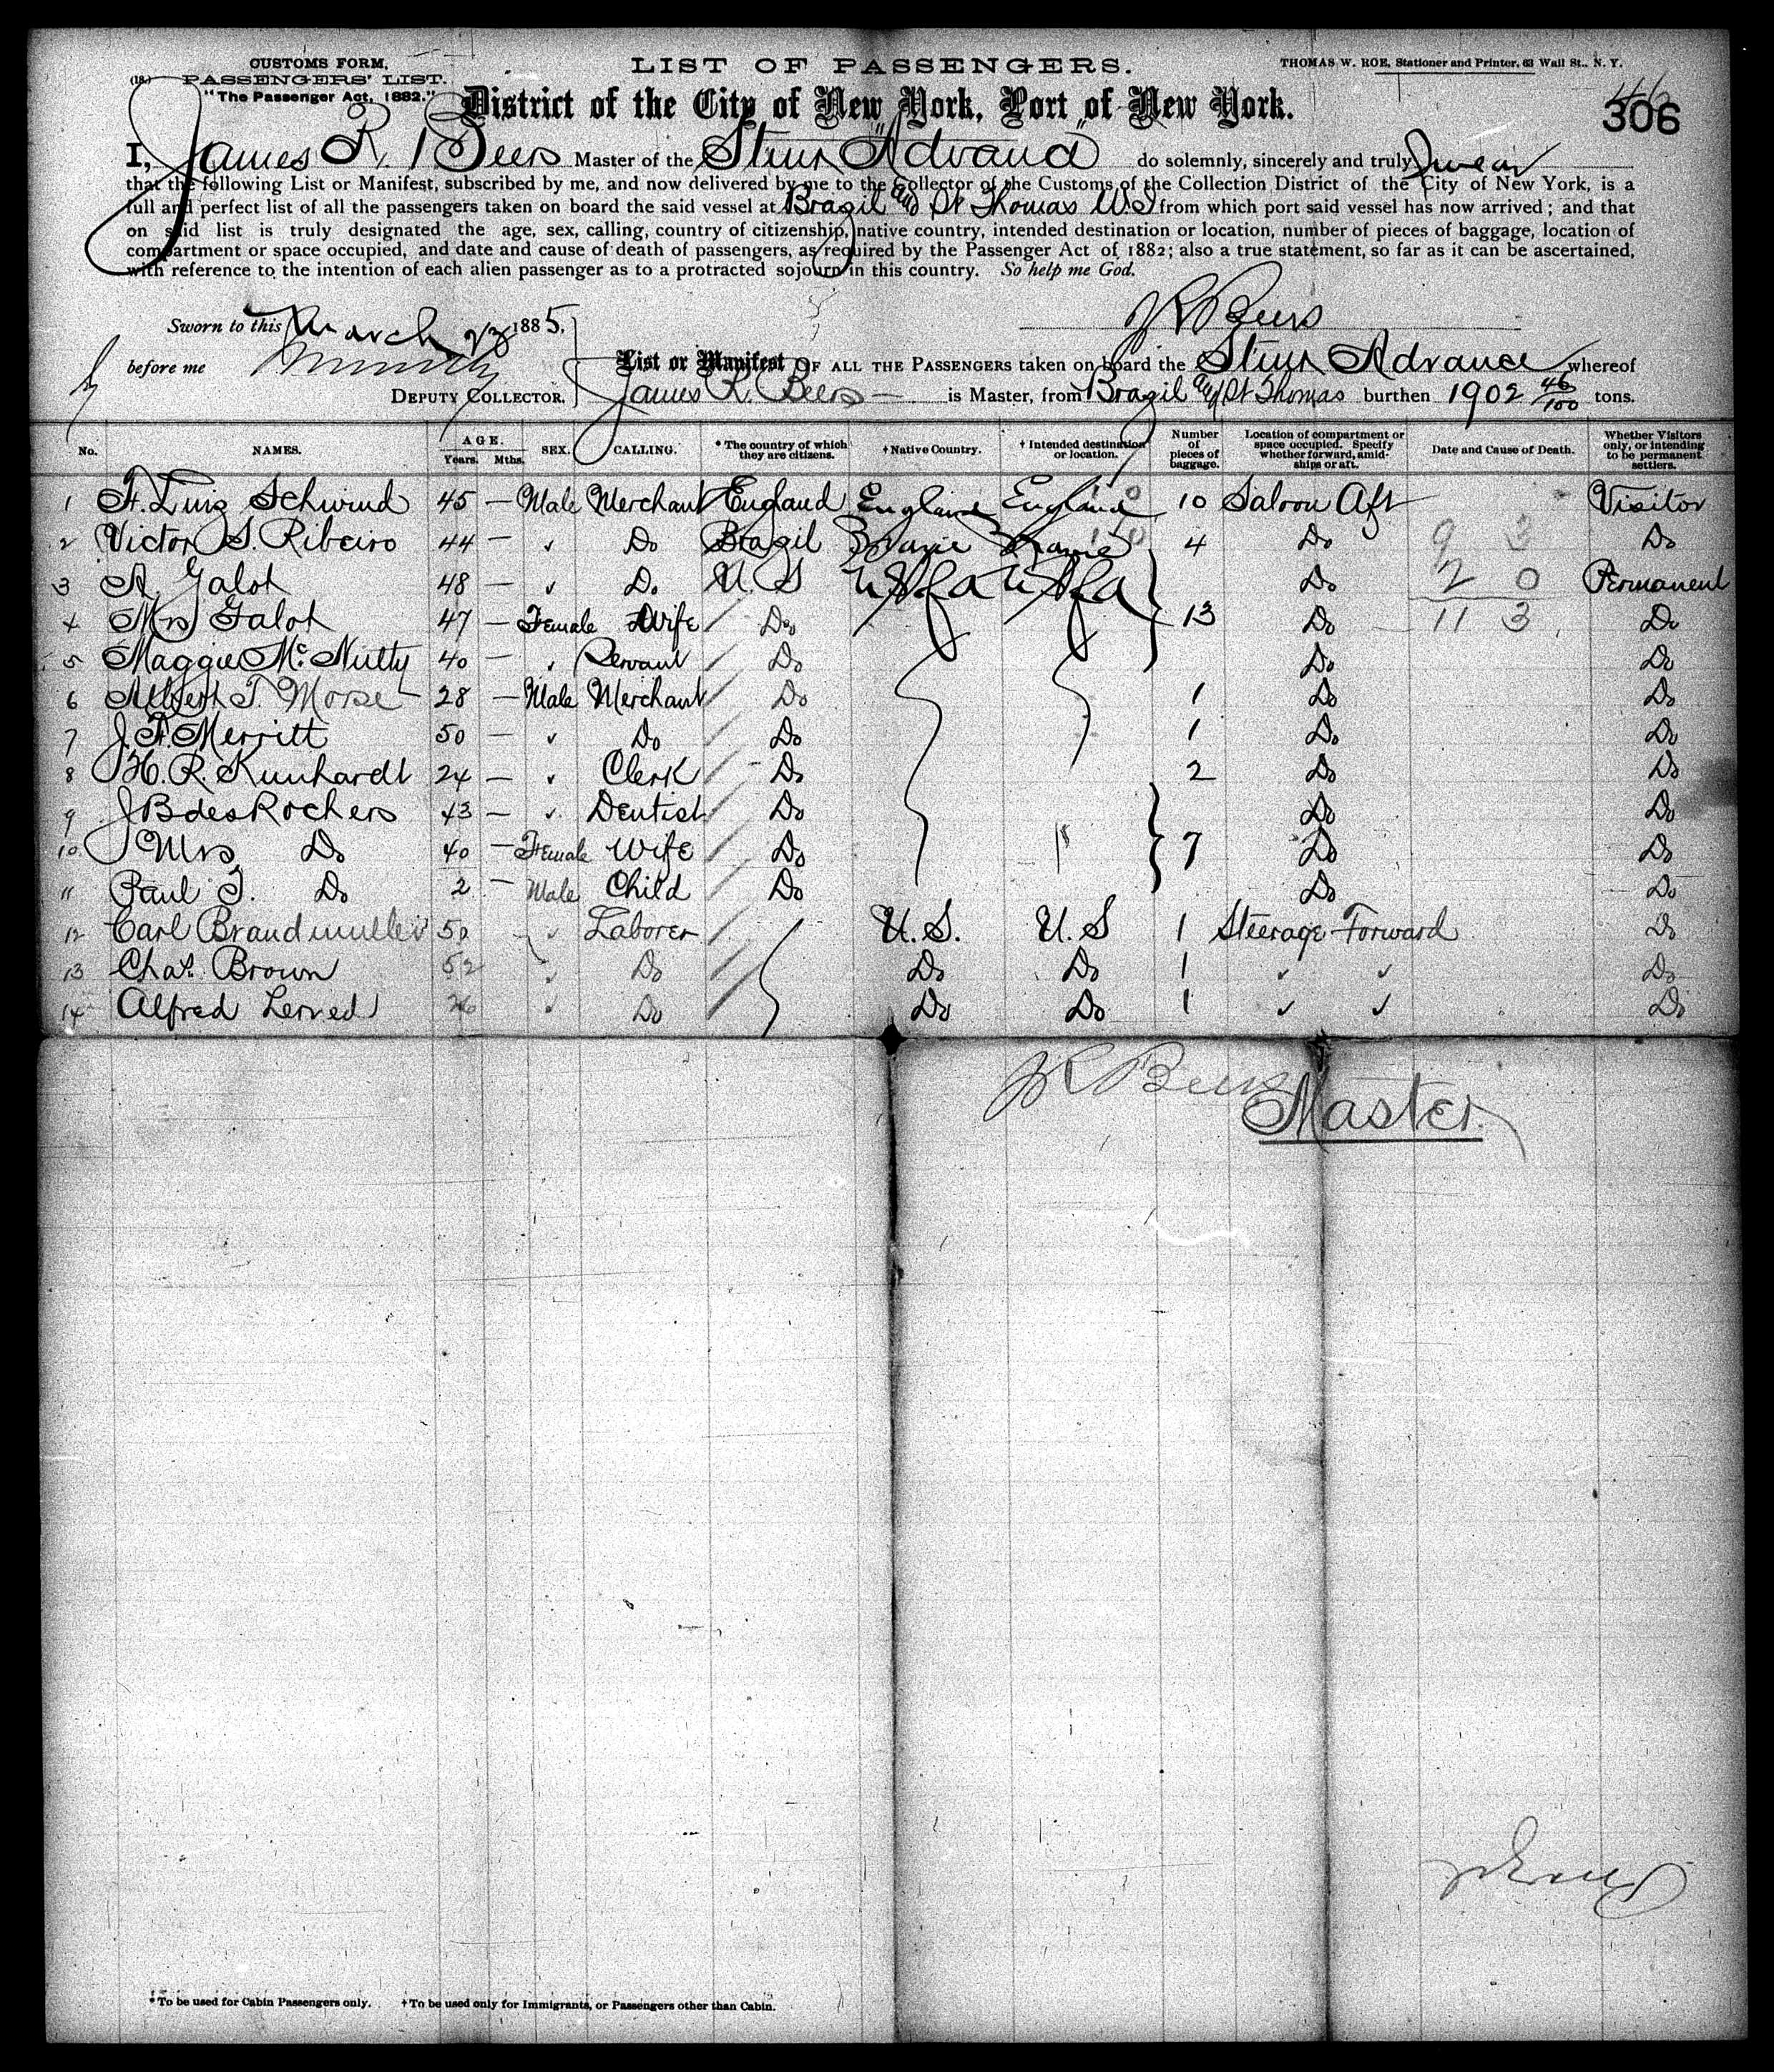 CUSTOMS FORM,
(18.) PASSENGERS' LIST.
"The Passenger Act, 1882."
LIST OF PASSENGERS.
THOMAS W. ROE, Stationer and Printer, 63 Wall St., N. Y.
District of the City of New York, Port of New York.
306
I, James R. Beers Master of the Stmr "Advance" do solemnly, sincerely and truly swear
that the following List or Manifest, subscribed by me, and now delivered by me to the Collector of the Customs of the Collection District of the City of New York, is a
full and perfect list of all the passengers taken on board the said vessel at Brazil and St Thomas W.I from which port said vessel has now arrived; and that
on said list is truly designated the age, sex, calling, country of citizenship, native country, intended destination or location, number of pieces of baggage, location of
compartment or space occupied, and date and cause of death of passengers, as required by the Passenger Act of 1882; also a true statement, so far as it can be ascertained,
with reference to the intention of each alien passenger as to a protracted sojourn in this country. So help me God.
JR Beers
Sworn to this March 1885,
before me
DEPUTY COLLECTOR.
List or Manifest OF ALL THE PASSENGERS taken on board the Stmr Advance whereof
James R. Beers is Master, from Brazil and St Thomas burthen 1902 46/100 tons.
No. NAMES. AGE. Years. Mths. SEX. CALLING. * The country of which they are citizens. † Native Country. † Intended destination or location. Number of pieces of baggage. Location of compartment or space occupied. Specify whether forward, amidships or aft. Date and Cause of Death. Whether Visitors only, or intending to be permanent settlers.
1 F. Luiz Schwind 45 — Male Merchant England England England 10 Saloon Aft Visitor
2 Victor S. Ribeiro 44 — " Do Brazil 4 Do 9 3 Do
3 A. Galot 48 — " Do U. S USA USA Do 2 0 Permanent
4 Mrs Galot 47 — Female Wife Do 13 Do 11 3 Do
5 Maggie Mc Nutty 40 — " Servant Do Do Do
6 Albert T. Morse 28 — Male Merchant Do 1 Do Do
7 J. F. Merritt 50 — " Do Do 1 Do Do
8 H. R. Kunhardt 24 — " Clerk Do 2 Do Do
9 J B desRochers 43 — " Dentist Do Do Do
10 Mrs Do 40 — Female Wife Do 7 Do Do
11 Paul T. Do 2 — Male Child Do Do Do
12 Carl Brandmuller 50 " Laborer U. S. U. S 1 Steerage Forward Do
13 Chas. Brown 52 " Do Do Do 1 " " Do
14 Alfred Lerved 26 " Do Do Do 1 " " Do
JR Beers
Master.
* To be used for Cabin Passengers only. † To be used only for Immigrants, or Passengers other than Cabin.